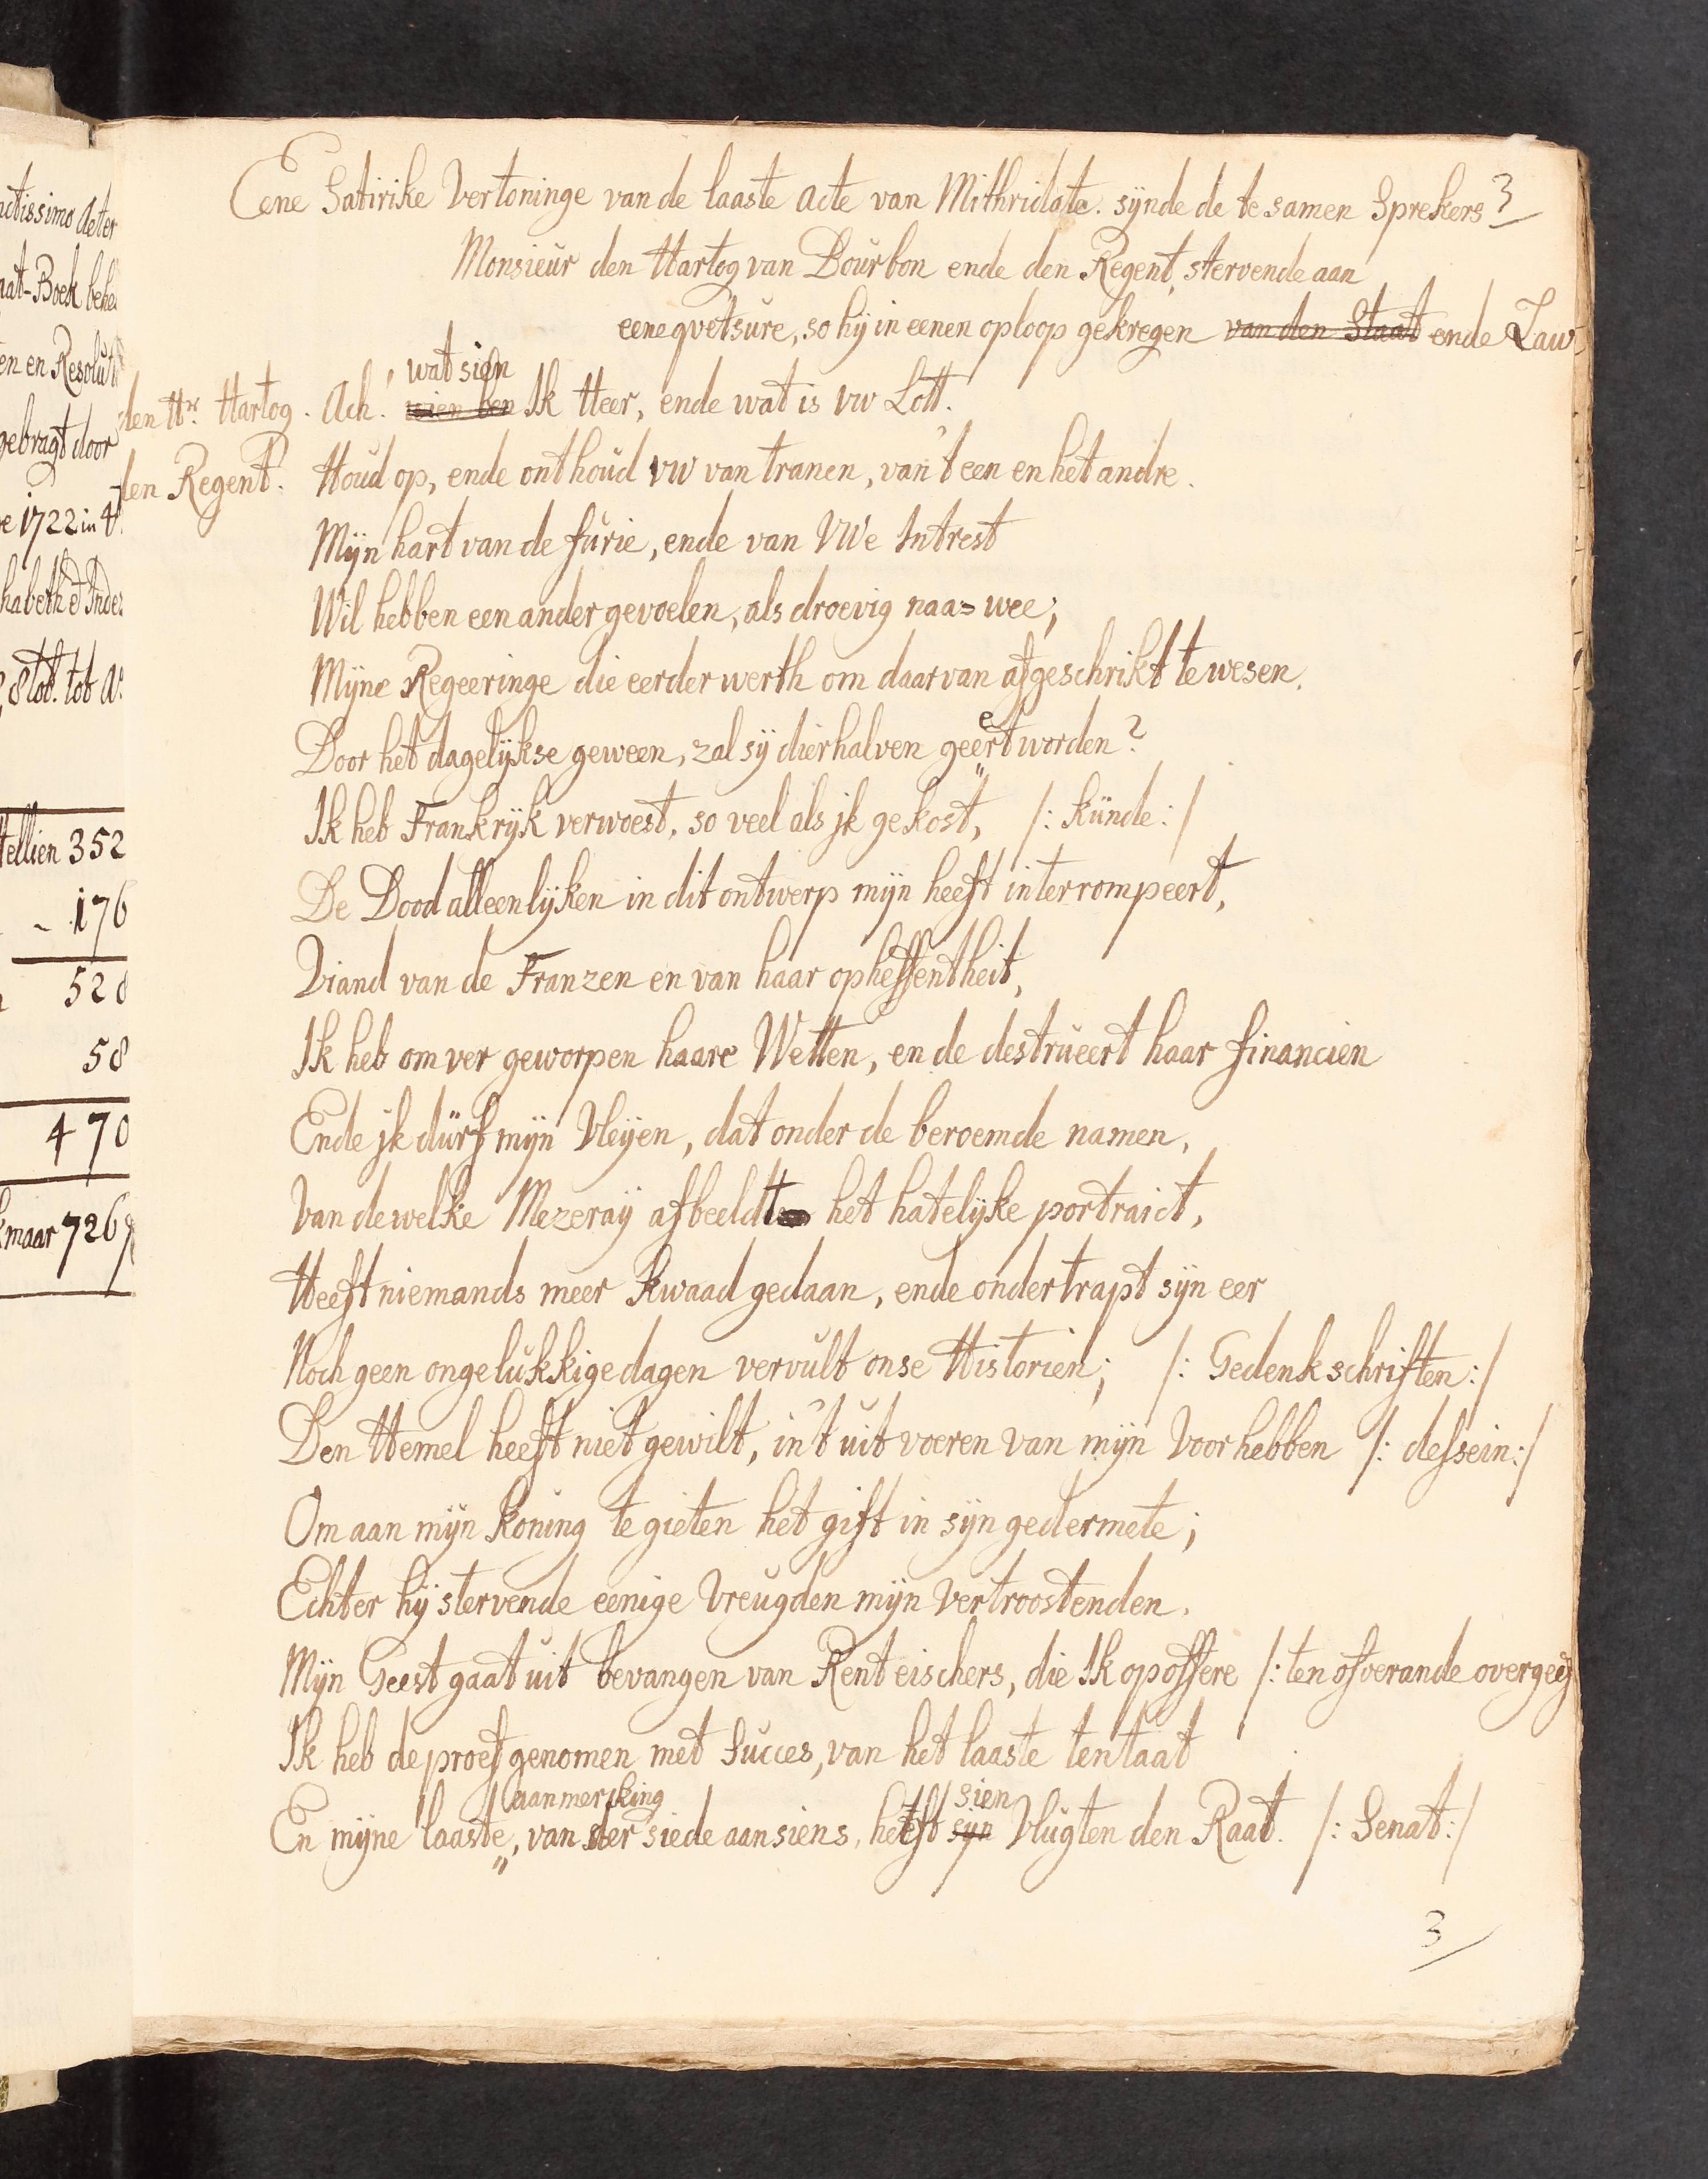 nctissimo deter
aat-Boek behe
en en Resolut
gebragt door
e 1722 in 4
habeth
Slot. tot A:
tellien 352
176
528
58
470
kmaar 726
Eene Satirike Vertoninge van de laaste Acte van Mithridate. sÿnde de te samen Sprekers 3
Monsieur den Hartog van Bourbon ende den Regent, stervende aan
eene qvetsure, so hÿ in eenen oploop gekregen van den Staat ende Law
wat sien
den Hr. Hartog. Ach! wien ben Ik Heer, ende wat is vw Lott.
den Regent. Houd op, ende onthoud vw van tranen, van't een en het andre.
Mijn hart van de furie, ende van VWe Intrest
Wil hebben een ander gevoelen, als droevig naa=wee;
Mÿne Regeeringe die eerder werth om daar van afgeschrikt te wesen.
Door het dagelÿkse geween, zal sÿ dierhalven geeert worden?
Ik heb Frankrÿk verwoest, so veel als jk gekost, /: künde :/
De Dood alleenlÿken in dit ontwerp mijn heeft interrompeert,
Viand van de Franzen en van haar opheffentheit,
Ik heb om ver geworpen haare Wetten, ende destrueert haar financien
Ende jk dürf mijn Vleÿen, dat onder de beroemde namen,
Van dewelke Mezeraÿ afbeeldt het hatelÿke portraict,
Heeft niemands meer kwaad gedaan, ende ondertrapt sÿn eer
Noch geen ongelukkige dagen vervult onse Historien; /: Gedenkschriften :/
Den Hemel heeft niet gewilt, in't uit voeren van mijn Voorhebben /: dessein :/
Om aan mijn Koning te gieten het gift in sÿn gedermete;
Echter hÿ stervende eenige Vreugden mijn Vertroostenden.
Mijn Geest gaat uit bevangen van Rent eischers, die Ik opoffere /: ten ofverande overgeef
Ik heb de proef genomen met Succes, van het laaste tentaat
aanmerking sien
En mijne laaste, van der siede aansiens, heeft sijn Vlugten den Raat. /: Senat :/
3